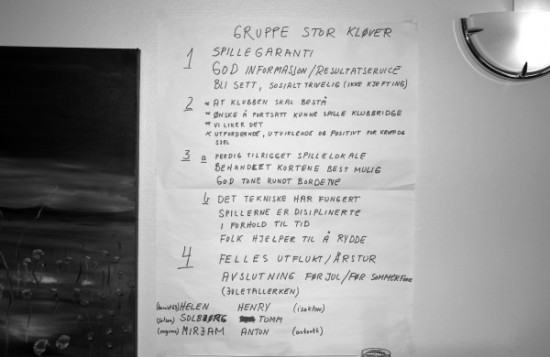 GRUPPE STOR KLØVER
1 SPILLEGARANTI
GOD INFORMASJON/RESULTATSERVICE
BLI SETT, SOSIALT TRIVELIG (IKKE KJEFTING)
2 * AT KLUBBEN SKAL BESTÅ
* ØNSKE Å FORTSATT KUNNE SPILLE KLUBBRIDGE
* VI LIKER DET
* UTFORDRENDE, UTVIKLENDE OG POSITIVT FOR KROPP OG
SJEL
3 a FERDIG TILRIGGET SPILLELOKALE
BEHANDLET KORTENE BEST MULIG
GOD TONE RUNDT BORDENE
b DET TEKNISKE HAR FUNGERT
SPILLERNE ER DISIPLINERTE
I FORHOLD TIL TID
FOLK HJELPER TIL Å RYDDE
4 FELLES UTFLUKT/ÅRSTUR
AVSLUTNING FØR JUL/FØR SOMMERFERIE
(JULETALLERKEN)
HELEN HENRY
SOLBJØRG TOMM
MIRJAM ANTON